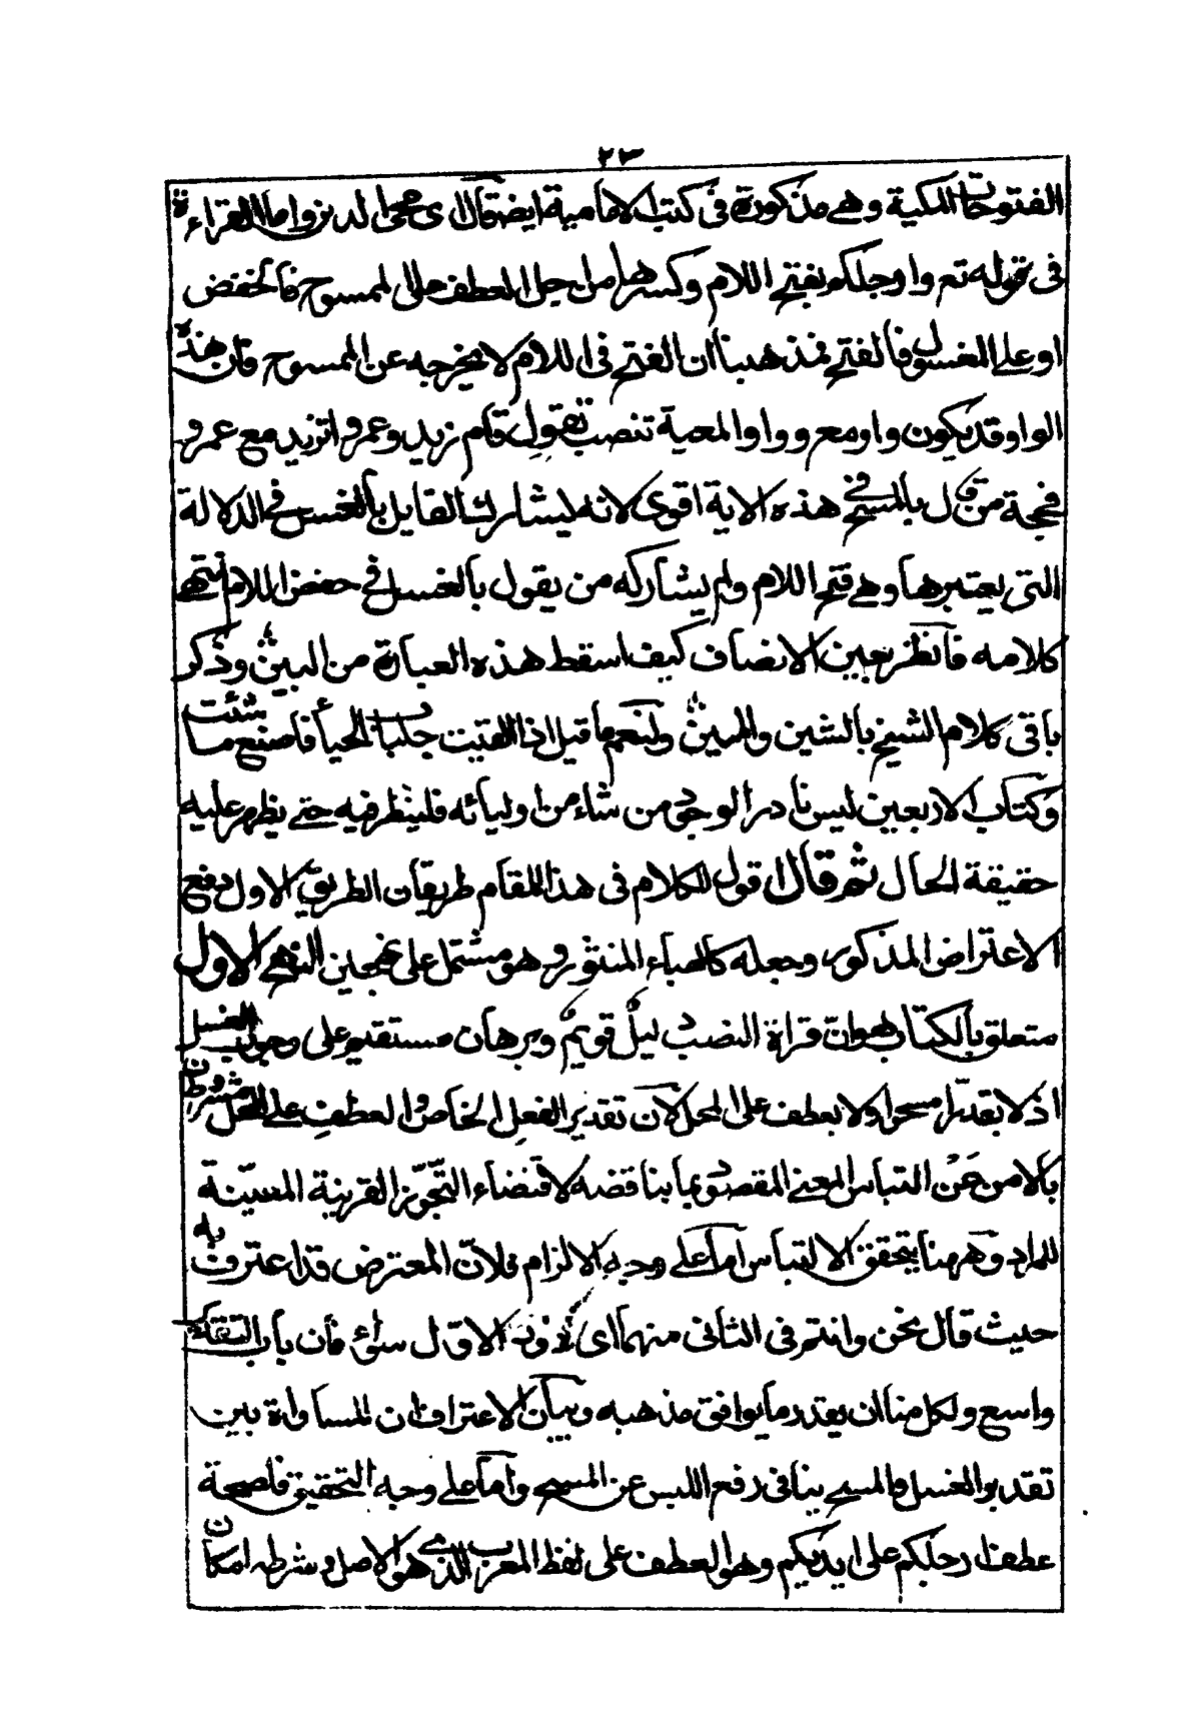 ٢٣
الفتوحات المكية وهي مذكورة في كتب الامامية ايضه قال اى محى الدين واما القراءة
فى قوله تع وارجلكم بفتح اللام وكسرها من اجل العطف على الممسوح فالخفض
او على المغسول فالفتح فمذهبنا ان الفتح في اللام لا يخرجه عن الممسوح فان هذه
الواو قد يكون واو مع وواو المعية تنصب تقول قام زيد وعمرو اتريد مع عمرو
فحجة من قال بالمسح في هذه الاية اقوى لانه يشارك القايل بالغسل في الدلالة
التى يعتبرها وهي فتح اللام ولم يشاركه من يقول بالغسل في خفض اللام انتهى
كلامه فانظر بعين الانصاف كيف اسقط هذه العبارة من البين وذكر
باقى كلام الشيخ بالشين والمين ولنعم ما قيل اذا القيت جلباب الحيا فاصنع ما شئت
وكتاب الاربعين ليس نادر الوجود من شاء من اوليائه فلينظر فيه حتى يظهر عليه
حقيقة الحال ثم قال اقول للكلام فى هذا المقام طريقان الطريق الاول دفع
الاعتراض المذكور وجعله كالهباء المنثور وهو مشتمل على نهجين النهج الاول
متعلق بالكتاب هو ان قراة النصب دليل قويم وبرهان مستقيم على وجوب الغسل
اذ لا يقدر امسحوا ولا يعطف على المحل لان تقدير الفعل الخاص والعطف على المحل مشروطان
بالامن عن التباس المعنى المقصود بما يناقضه لاقتضاء التجوز القرينة المعينة
للمراد وههنا يتحقق الالتباس اما على وجه الالزام فلان المعترض قد اعترف به
حيث قال نحن وانتم فى الثانى منهما اى دون الاول سواء فان باب التقدير
واسع ولكل منا ان يقدر ما يوافق مذهبه وبيان الاعتراف ان المساواة بين
تقدير الغسل والمسح ينافى رفع اللبس عن المسح واما على وجه التحقيق فلصحة
عطف ارجلكم على ايديكم وهو العطف على لفظ المعرب الذى هو الاصل وشرطه امكان